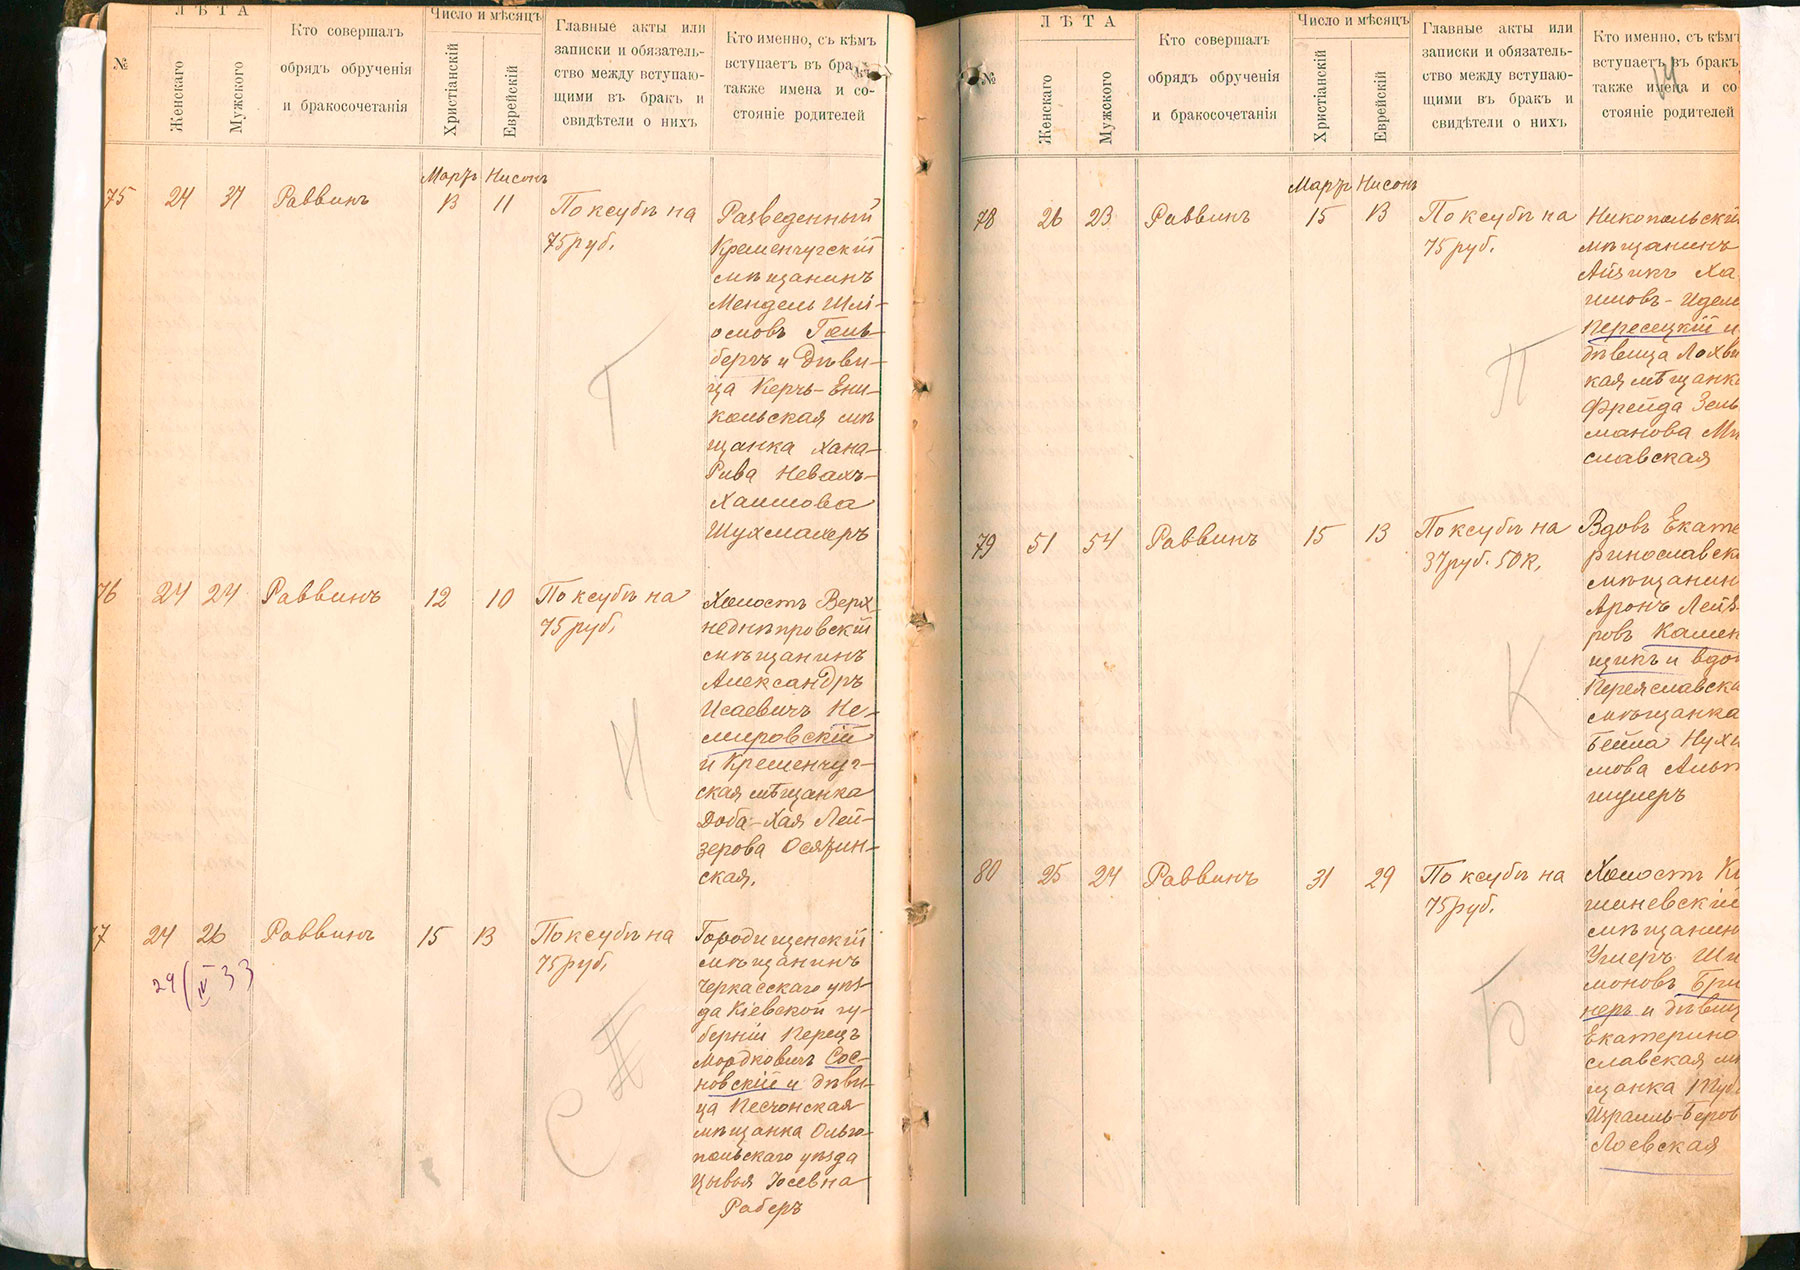 №
ЛѢТА
Женскаго
Мужского
Кто совершалъ
обрядъ обрученія
и бракосочетанія
Число и мѣсяцъ
Христіанскій
Еврейскій
Главные акты или
записки и обязатель-
ство между вступаю-
щими въ бракъ и
свидѣтели о нихъ
Кто именно, съ кѣмъ
вступаетъ въ бракъ
также имена и со-
стояніе родителей
Мартъ Нисонъ
75 24 37 Раввинъ 13 11
По ксубѣ на
75 руб.
Разведенный
Кременчугскій
мѣщанинъ
Мендель Шлі-
омовъ Голь-
бергъ и дѣви-
ца Керчь-Ени-
кольская мѣ
щанка Хана-
Рива Невахъ-
Хаимова
Шухмахеръ
76 24 24 Раввинъ 12 10
По ксубѣ на
75 руб.
Холостъ Верх
неднѣпровскій
мѣщанинъ
Александръ
Исаевичъ Не-
мировскій
и Кременчуг-
ская мѣщанка
Доба-Хая Лей-
зерова Осязин-
ская.
Н
77 24 26 Раввинъ 15 13
29 IV 33
По ксубѣ на
75 руб.
Городищенскій
мѣщанинъ
Черкасскаго уѣз-
да Кіевской гу-
берніи Перецъ
Мордковичъ Сос-
новскій и дѣви-
ца Песчонская
мѣщанка Ольго-
польскаго уѣзда
Цывья Іосевна
Раберъ
Г
С
№
ЛѢТА
Женскаго
Мужского
Кто совершалъ
обрядъ обрученія
и бракосочетанія
Число и мѣсяцъ
Христіанскій
Еврейскій
Главные акты или
записки и обязатель-
ство между вступаю-
щими въ бракъ и
свидѣтели о нихъ
Кто именно, съ кѣмъ
вступаетъ въ бракъ
также имена и со
стояніе родителей
Мартъ Нисонъ
78 26 23 Раввинъ 15 13
По ксубѣ на
75 руб.
Никопольскій
мѣщанинъ
Айзикъ Ха
имовъ-Идел
Пересецкій и
дѣвица Лохви
кая мѣщанка
Фрейда Зель
манова Ми
славская
П
79 51 54 Раввинъ 15 13
По ксубѣ на
37 руб. 50 к.
Вдовъ Екате
ринославск
мѣщанин
Аронъ Лейзе
ровъ Камен
щикъ и вдо
Переяславска
мѣщанка
Бейла Нухи
мова Альт
шулеръ
К
80 25 24 Раввинъ 31 29
По ксубѣ на
75 руб.
Холостъ Ки
шиневскій
мѣщанин
Ушеръ Ши
моновъ Бри
неръ и дѣвиц
Екатерино
славская мѣ
щанка
Израиль-Беров
Лоевская
Б